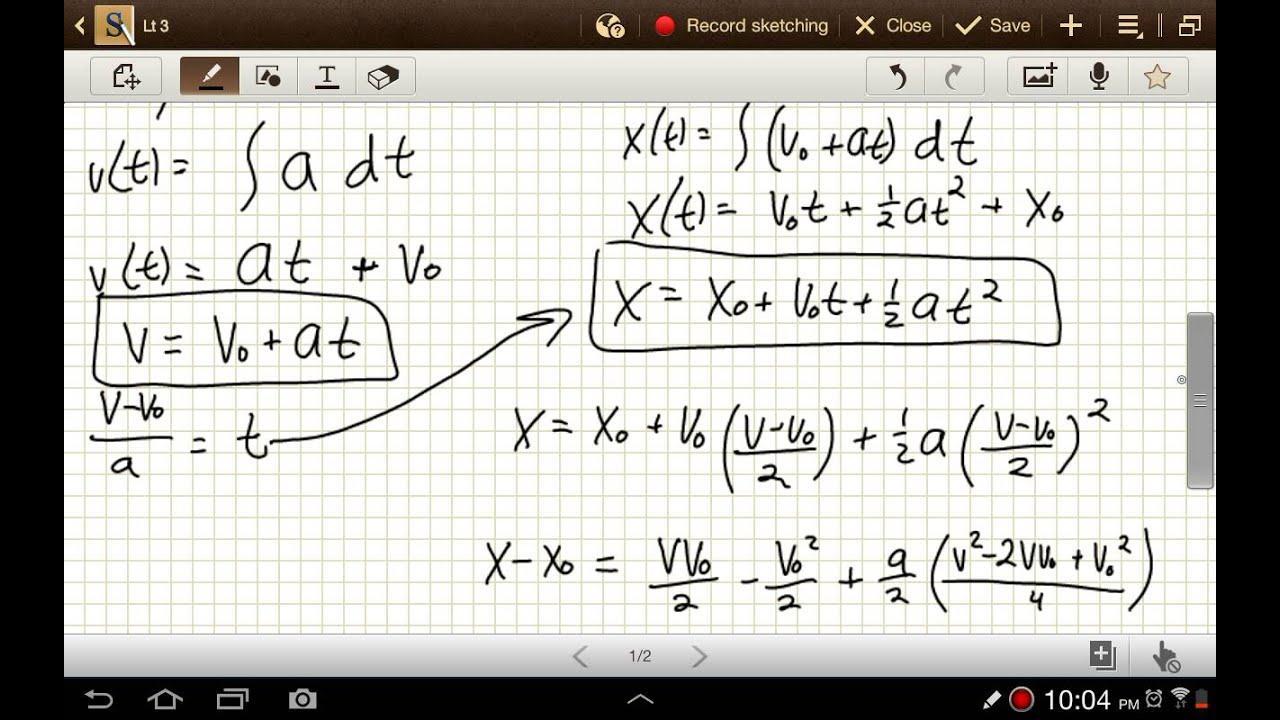 Lt 3
Record sketching
Close
Save
T
v(t) = ∫ a dt
v(t) = at + V₀
V = V₀ + at
(V-V₀)/a = t
X(t) = ∫ (V₀ + at) dt
X(t) = V₀t + ½at² + X₀
X = X₀ + V₀t + ½at²
X = X₀ + V₀((V-V₀)/2) + ½a((V-V₀)/2)²
X - X₀ = VV₀/2 - V₀²/2 + a/2((V² - 2VV₀ + V₀²)/4)
1/2
10:04 PM